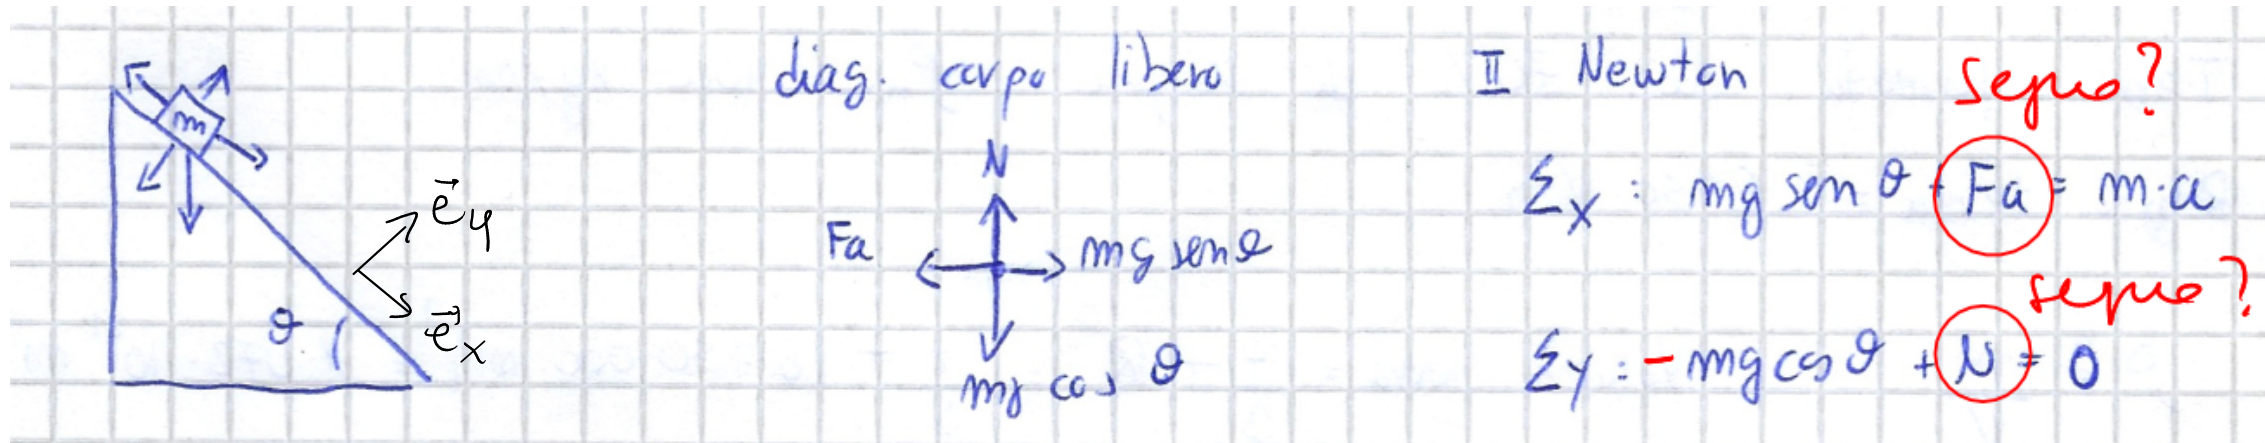 m
e⃗y
e⃗x
θ
diag. corpo libero
N
Fa
mg sen θ
mg cos θ
II Newton
segno?
Σx : mg sen θ + Fa = m·a
segno?
Σy : - mg cos θ + N = 0